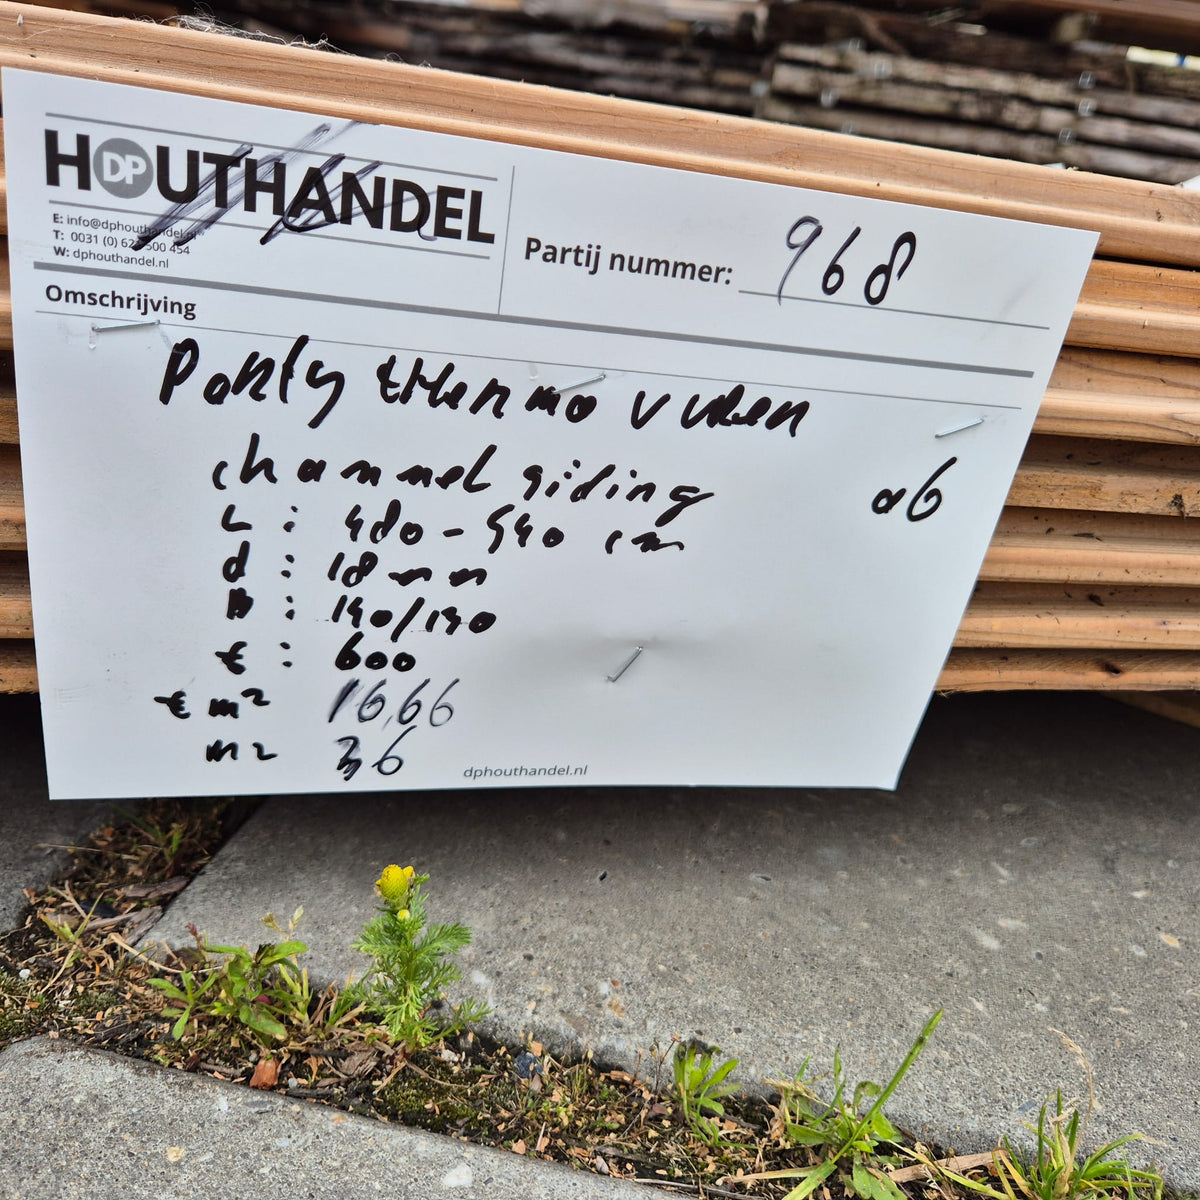 HOUTHANDEL
DP
E: info@dphouthandel.nl
T: 0031 (0) 62 500 454
W: dphouthandel.nl
Partij nummer: 968
Omschrijving
Partij thermo vuren
channel siding
a6
L : 480 - 540 cm
d : 18 mm
B : 140/190
€ : 600
€ m² 16,66
m2 36
dphouthandel.nl